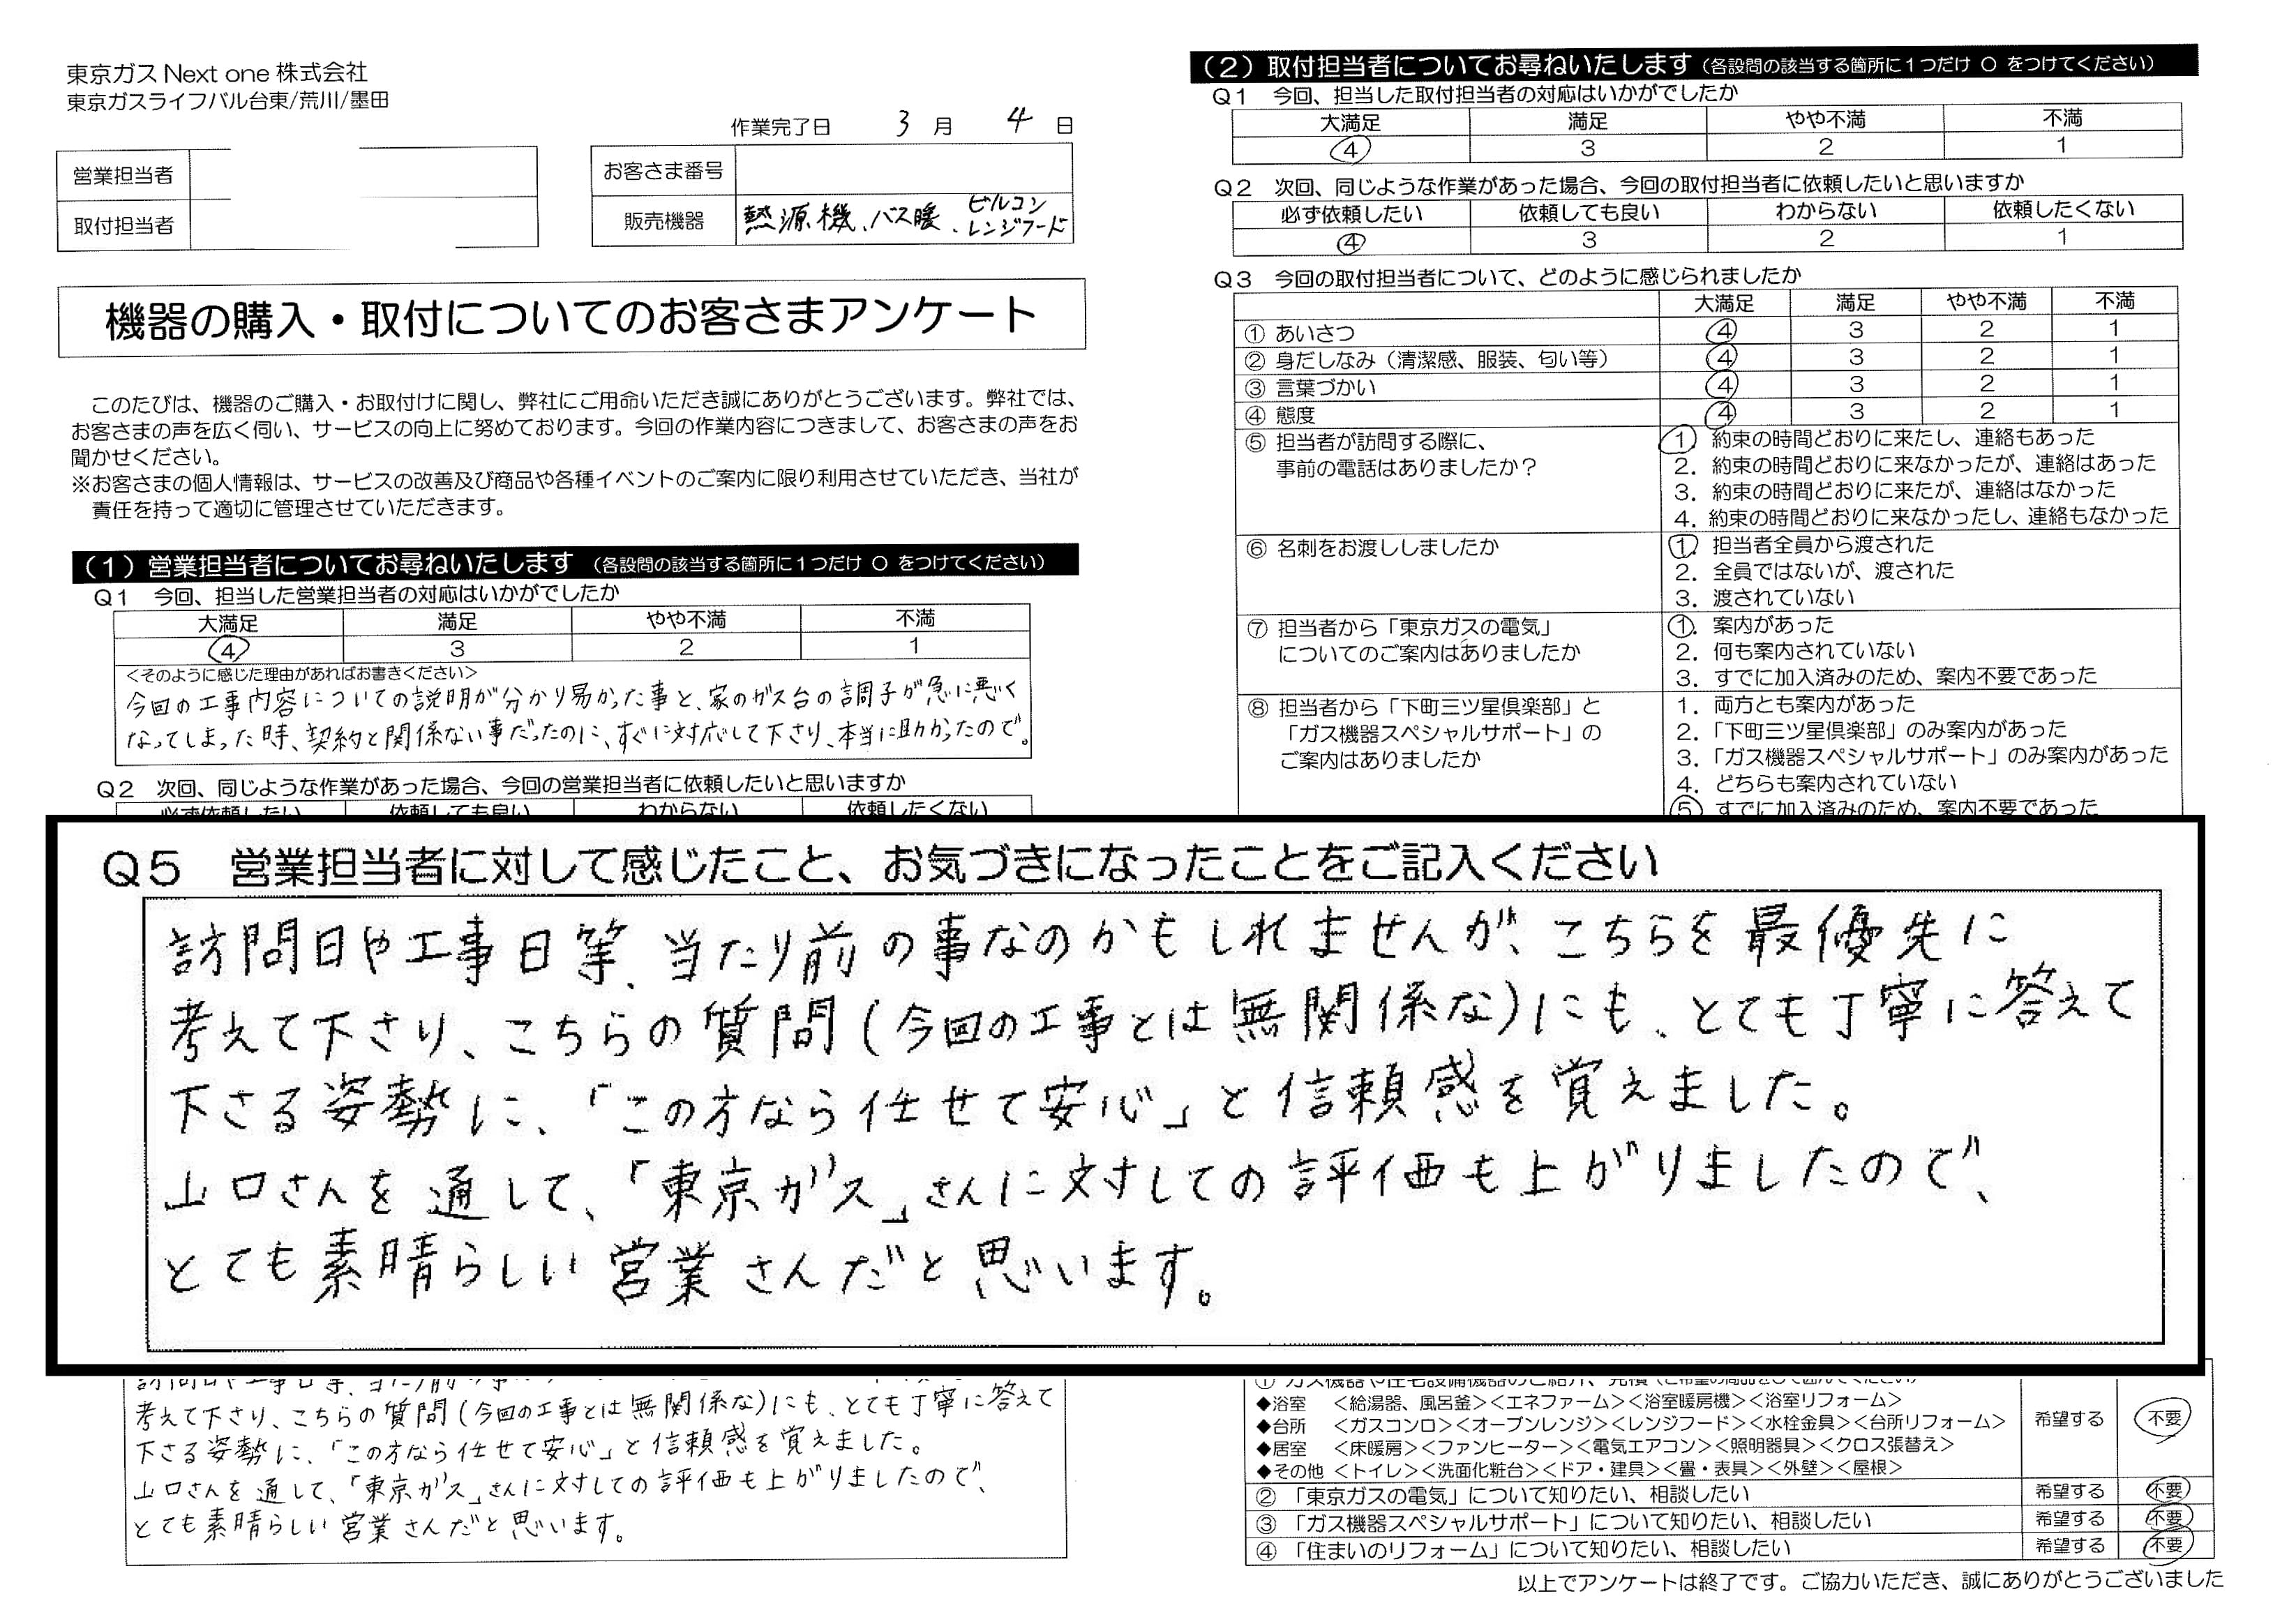 東京ガス Next one 株式会社
東京ガスライフバル台東/荒川/墨田
作業完了日 3 月 4 日
営業担当者
取付担当者
お客さま番号
販売機器 熱源機、バス暖、ビルコン
レンジフード
機器の購入・取付についてのお客さまアンケート
このたびは、機器のご購入・お取付けに関し、弊社にご用命いただき誠にありがとうございます。弊社では、
お客さまの声を広く伺い、サービスの向上に努めております。今回の作業内容につきまして、お客さまの声をお
聞かせください。
※お客さまの個人情報は、サービスの改善及び商品や各種イベントのご案内に限り利用させていただき、当社が
責任を持って適切に管理させていただきます。
（1）営業担当者についてお尋ねいたします （各設問の該当する箇所に1つだけ ○ をつけてください）
Q1 今回、担当した営業担当者の対応はいかがでしたか
大満足 満足 やや不満 不満
4 3 2 1
＜そのように感じた理由があればお書きください＞
今回の工事内容についての説明が分かり易かった事と、家のガス台の調子が急に悪く
なってしまった時、契約と関係ない事だったのに、すぐに対応して下さり、本当に助かったので。
Q2 次回、同じような作業があった場合、今回の営業担当者に依頼したいと思いますか
必ず依頼したい 依頼しても良い わからない 依頼したくない
（2）取付担当者についてお尋ねいたします（各設問の該当する箇所に1つだけ ○ をつけてください）
Q1 今回、担当した取付担当者の対応はいかがでしたか
大満足 満足 やや不満 不満
4 3 2 1
Q2 次回、同じような作業があった場合、今回の取付担当者に依頼したいと思いますか
必ず依頼したい 依頼しても良い わからない 依頼したくない
4 3 2 1
Q3 今回の取付担当者について、どのように感じられましたか
大満足 満足 やや不満 不満
① あいさつ 4 3 2 1
② 身だしなみ（清潔感、服装、匂い等） 4 3 2 1
③ 言葉づかい 4 3 2 1
④ 態度 4 3 2 1
⑤ 担当者が訪問する際に、
事前の電話はありましたか？
1. 約束の時間どおりに来たし、連絡もあった
2. 約束の時間どおりに来なかったが、連絡はあった
3. 約束の時間どおりに来たが、連絡はなかった
4. 約束の時間どおりに来なかったし、連絡もなかった
⑥ 名刺をお渡ししましたか
1. 担当者全員から渡された
2. 全員ではないが、渡された
3. 渡されていない
⑦ 担当者から「東京ガスの電気」
についてのご案内はありましたか
1. 案内があった
2. 何も案内されていない
3. すでに加入済みのため、案内不要であった
⑧ 担当者から「下町三ツ星倶楽部」と
「ガス機器スペシャルサポート」の
ご案内はありましたか
1. 両方とも案内があった
2. 「下町三ツ星倶楽部」のみ案内があった
3. 「ガス機器スペシャルサポート」のみ案内があった
4. どちらも案内されていない
5 すでに加入済みのため、案内不要であった
Q5 営業担当者に対して感じたこと、お気づきになったことをご記入ください
訪問日や工事日等、当たり前の事なのかもしれませんが、こちらを最優先に
考えて下さり、こちらの質問(今回の工事とは無関係な)にも、とても丁寧に答えて
下さる姿勢に、「この方なら任せて安心」と信頼感を覚えました。
山口さんを通して、「東京ガス」さんに対しての評価も上がりましたので、
とても素晴らしい営業さんだと思います。
考えて下さり、こちらの質問(今回の工事とは無関係な)にも、とても丁寧に答えて
下さる姿勢に、「この方なら任せて安心」と信頼感を覚えました。
山口さんを通して、「東京ガス」さんに対しての評価も上がりましたので、
とても素晴らしい営業さんだと思います。
◆浴室 ＜給湯器、風呂釜＞＜エネファーム＞＜浴室暖房機＞＜浴室リフォーム＞
◆台所 ＜ガスコンロ＞＜オーブンレンジ＞＜レンジフード＞＜水栓金具＞＜台所リフォーム＞ 希望する 不要
◆居室 ＜床暖房＞＜ファンヒーター＞＜電気エアコン＞＜照明器具＞＜クロス張替え＞
◆その他 ＜トイレ＞＜洗面化粧台＞＜ドア・建具＞＜畳・表具＞＜外壁＞＜屋根＞
② 「東京ガスの電気」について知りたい、相談したい 希望する 不要
③ 「ガス機器スペシャルサポート」について知りたい、相談したい 希望する 不要
④ 「住まいのリフォーム」について知りたい、相談したい 希望する 不要
以上でアンケートは終了です。ご協力いただき、誠にありがとうございました